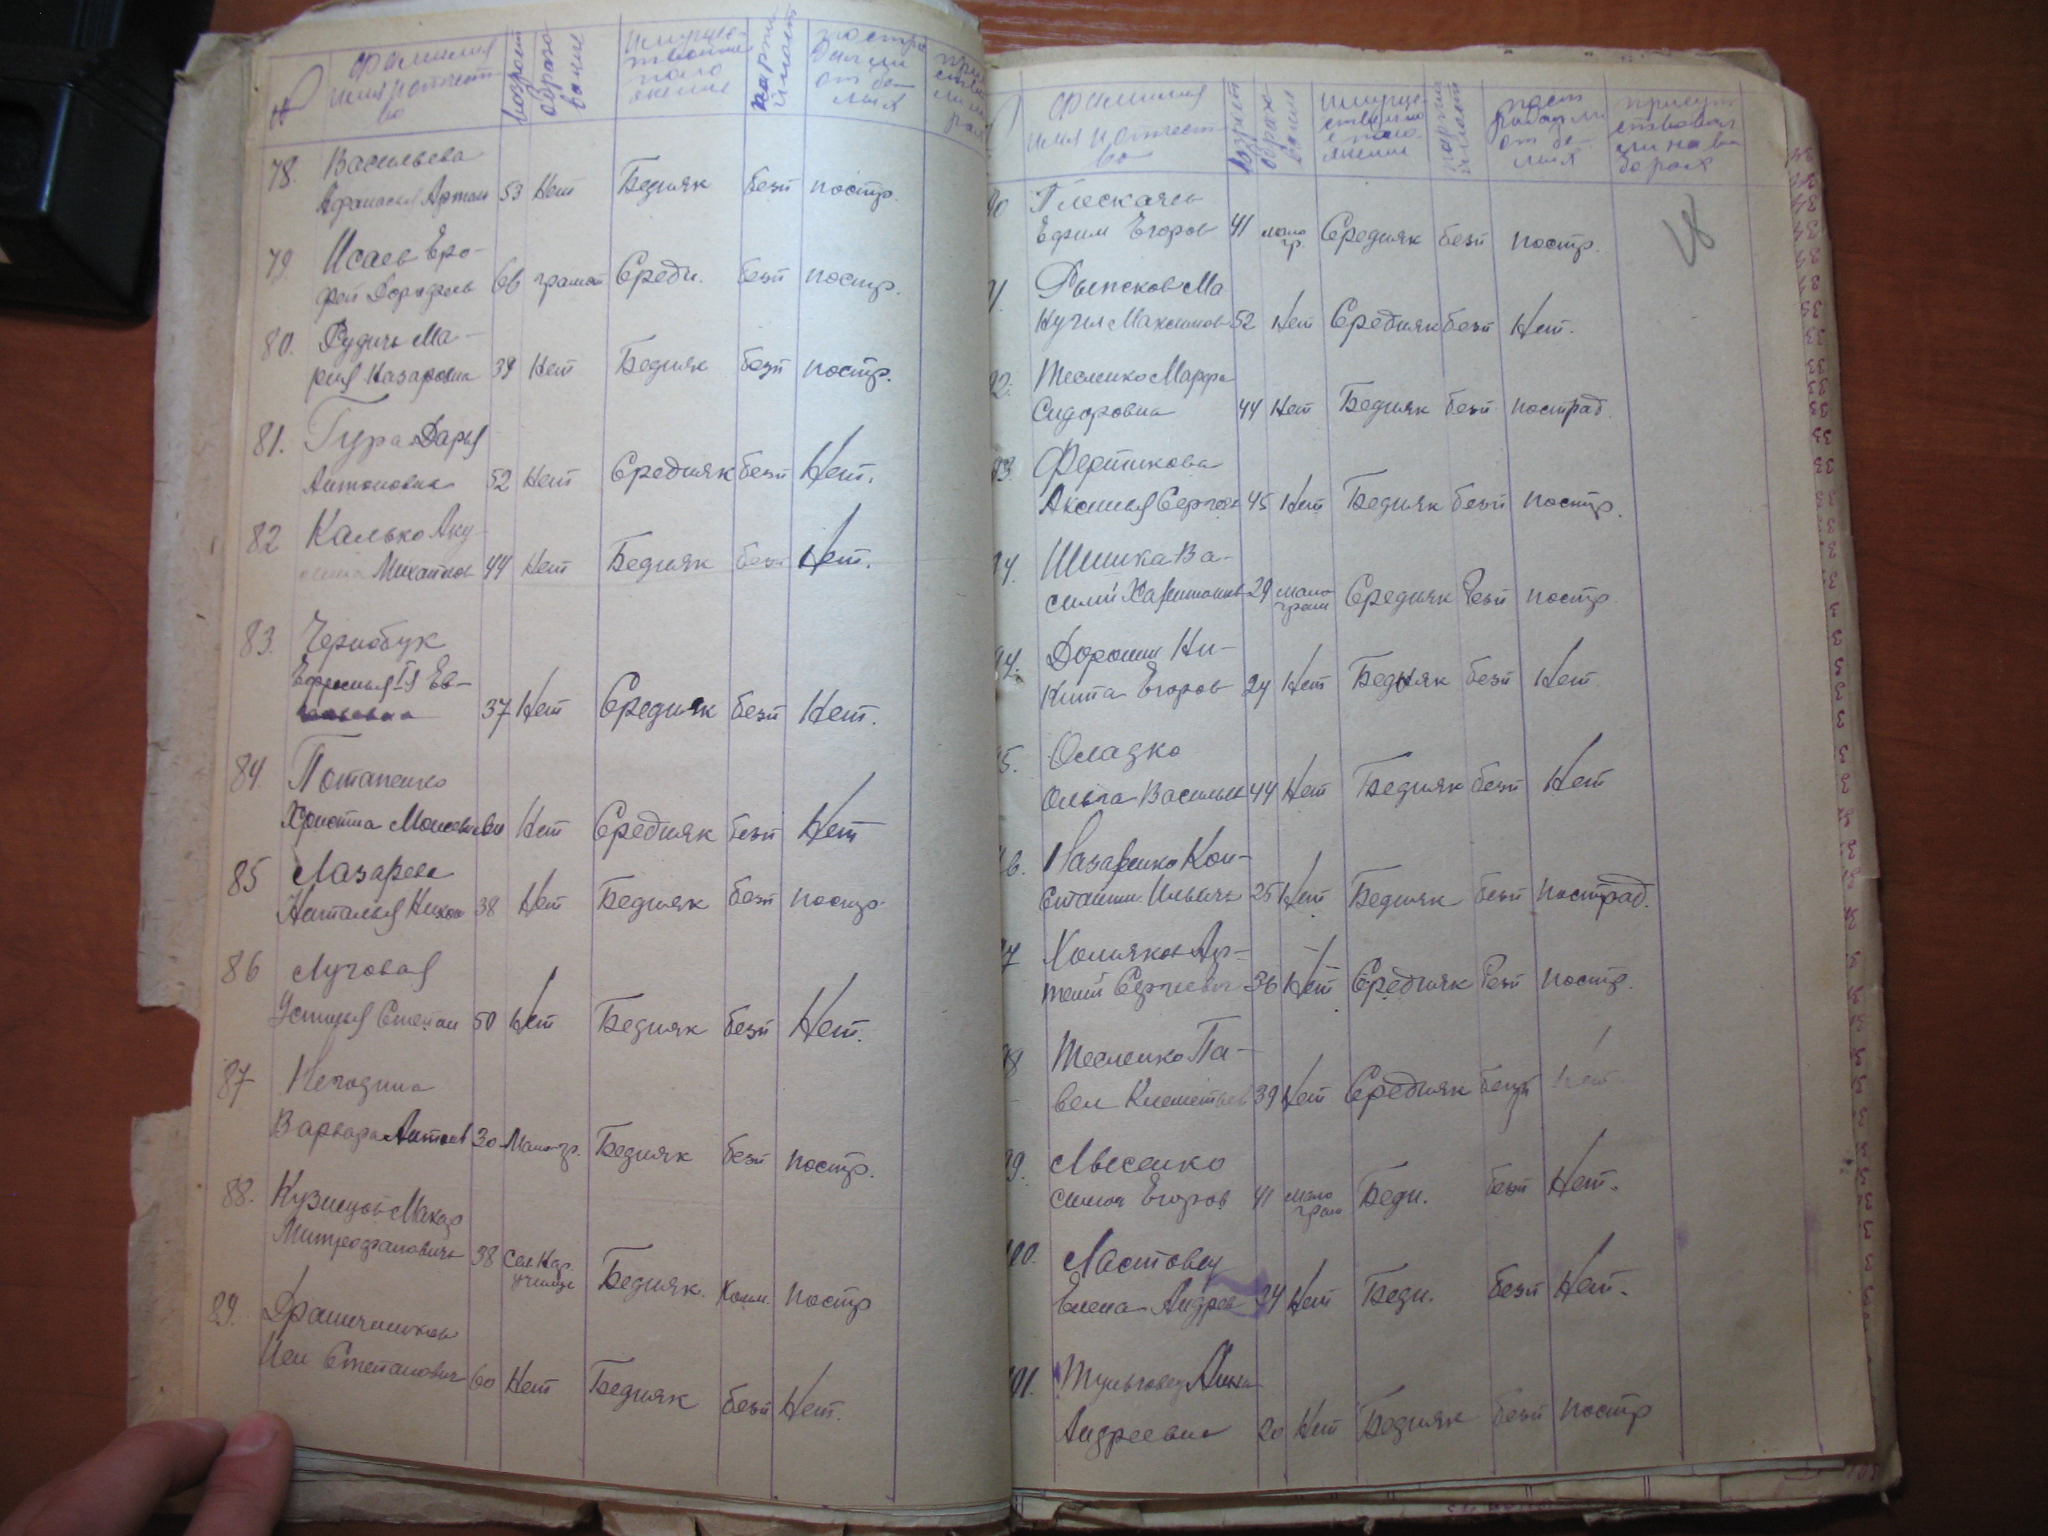 № фамилия имя и отчество возраст образование имущественное положение партийность пострадавши от белых
78. Васильева
Афанасья Артем 53 Нет Бедняк безп постр.
79 Исаев Еро-
фей Дорофеев 66 грамот Средн. безп постр.
80. Рудичь Ма-
рия Назаровна 39 Нет Бедняк безп постр.
81. Гура Дарья
Антоновна 52 Нет Средняк безп Нет.
82 Калько Аку-
Михайлов 44 Нет Бедняк безп Нет.
83. Чернобук
Ефросинья Ев-
37 Нет Средняк безп Нет.
84. Потапенко
Христина Моисеевн Нет Средняк безп Нет
85 Лазарева
Наталья Никон 38 Нет Бедняк безп постр.
86 Луговая
Устинья Степан 50 Нет Бедняк безп Нет.
87 Негодина
Варвара Антонов 30 Мало-гр. Бедняк безп постр.
88. Кузнецов Макар
Митрофановичь 38 Сел. Нар. училище Бедняк. Комм. постр
89.
Степанович 60 Нет Бедняк безп Нет.
фамилия имя и отчество возраст образование имущественно е положение партийность пострадавши от белых присутствовал ли на выборах
90 Плескачь
Ефим Егоров 41 мало гр. Средняк безп постр.
18
1.
Максимов 52 Нет Средняк безп Нет.
92. Тесленко Марфа
Сидоровна 44 Нет Бедняк безп пострад.
93. Фертикова
Аксинья Сергеев 45 Нет Бедняк безп постр.
94. Шишка Ва-
силий Харитонов 29 мало грам Средняк безп постр.
94. Дорошн Ни-
кита Егоров 24 Нет Бедняк безп Нет.
5. Оладко
Ольга Васильев 44 Нет Бедняк безп Нет
6. Назаренко Кон-
стантин. Ильичь 25 Нет Бедняк безп пострад.
97 Хомяков Ар-
темий Сергеевич 36 Нет Средняк безп постр.
98 Тесленко Па-
вел Клементьев 39 Нет Средняк безп Нет.
99. Лысенко
Симон Егоров 41 мало грам Бедн. безп Нет.
100. Ластовец
Елена Андрев 24 Нет Бедн. безп Нет.
101. Анна
Андреевна 20 Нет Бедняк безп постр